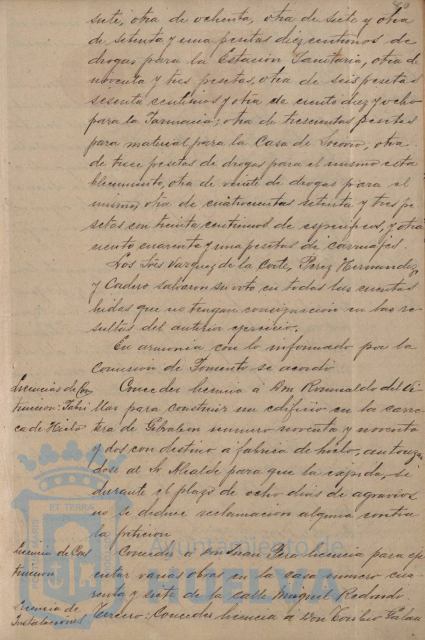 siete, otra de ochenta, otra de siete y otra
de setenta y una pesetas diez centimos de
drogas para la Estación Sanitaria, otra de
noventa y tres pesetas, otra de seis pesetas
sesenta centimos y otra de ciento diez y ocho
para la Farmacia; otra de trescientas pesetas
para material para la Casa de Socorro, otra
de trece pesetas de drogas para el mismo esta
blecimiento, otra de veinte de drogas para el
mismo, otra de cuatrocientas setenta y tres pe
setas con treinta centimos de y otra
ciento cuarenta y una pesetas de carruajes.
Los Sres Vazquez de la Corte, Perez Hernandez,
y Cordero salvaron su voto en todas las cuentas
que no tengan consignacion en las re
sultas del anterior ejercicio.
En armonia con lo informado por la
Comision de Fomento se acordó
Licencias de Con Conceder licencia á Don Romualdo del Ci
truccion: Fabri llar para construir un edificio en la carre
ca de Hielo tera de Gibraleon numero noventa y noventa
y dos con destino á fabrica de hielo, autorizan
dose al Sr Alcalde para que la expida, si
durante el plazo de ocho dias de agravios
no se deduce reclamacion alguna contra
la peticion
Licencia de Cons Conceder á Don Juan Pero licencia para eje
truccion cutar varias obras en la casa numero cua
renta y siete de la calle Miguel Redondo
Licencia de
Instalaciones Tercero: Conceder licencia á Don
ET TERRA
Ayuntamiento de
HUELVA